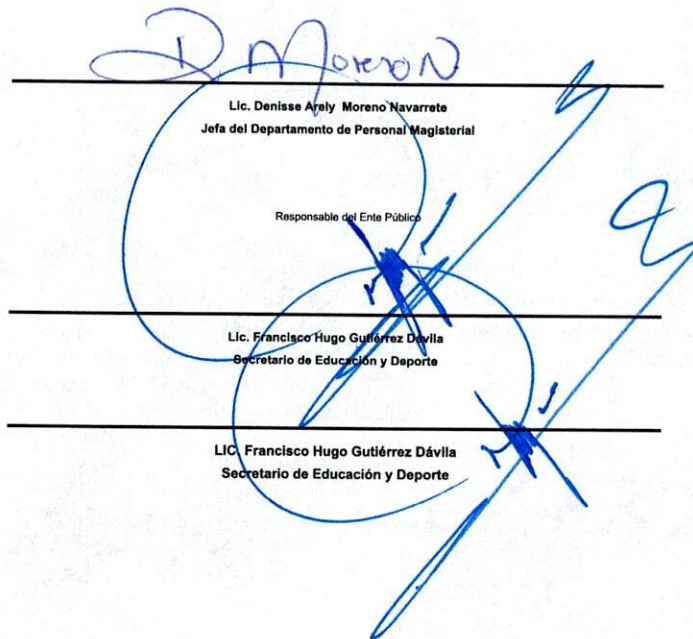 D Moreno N
Lic. Denisse Arely Moreno Navarrete
Jefa del Departamento de Personal Magisterial
Responsable del Ente Público
Lic. Francisco Hugo Gutiérrez Dávila
Secretario de Educación y Deporte
LIC. Francisco Hugo Gutiérrez Dávila
Secretario de Educación y Deporte